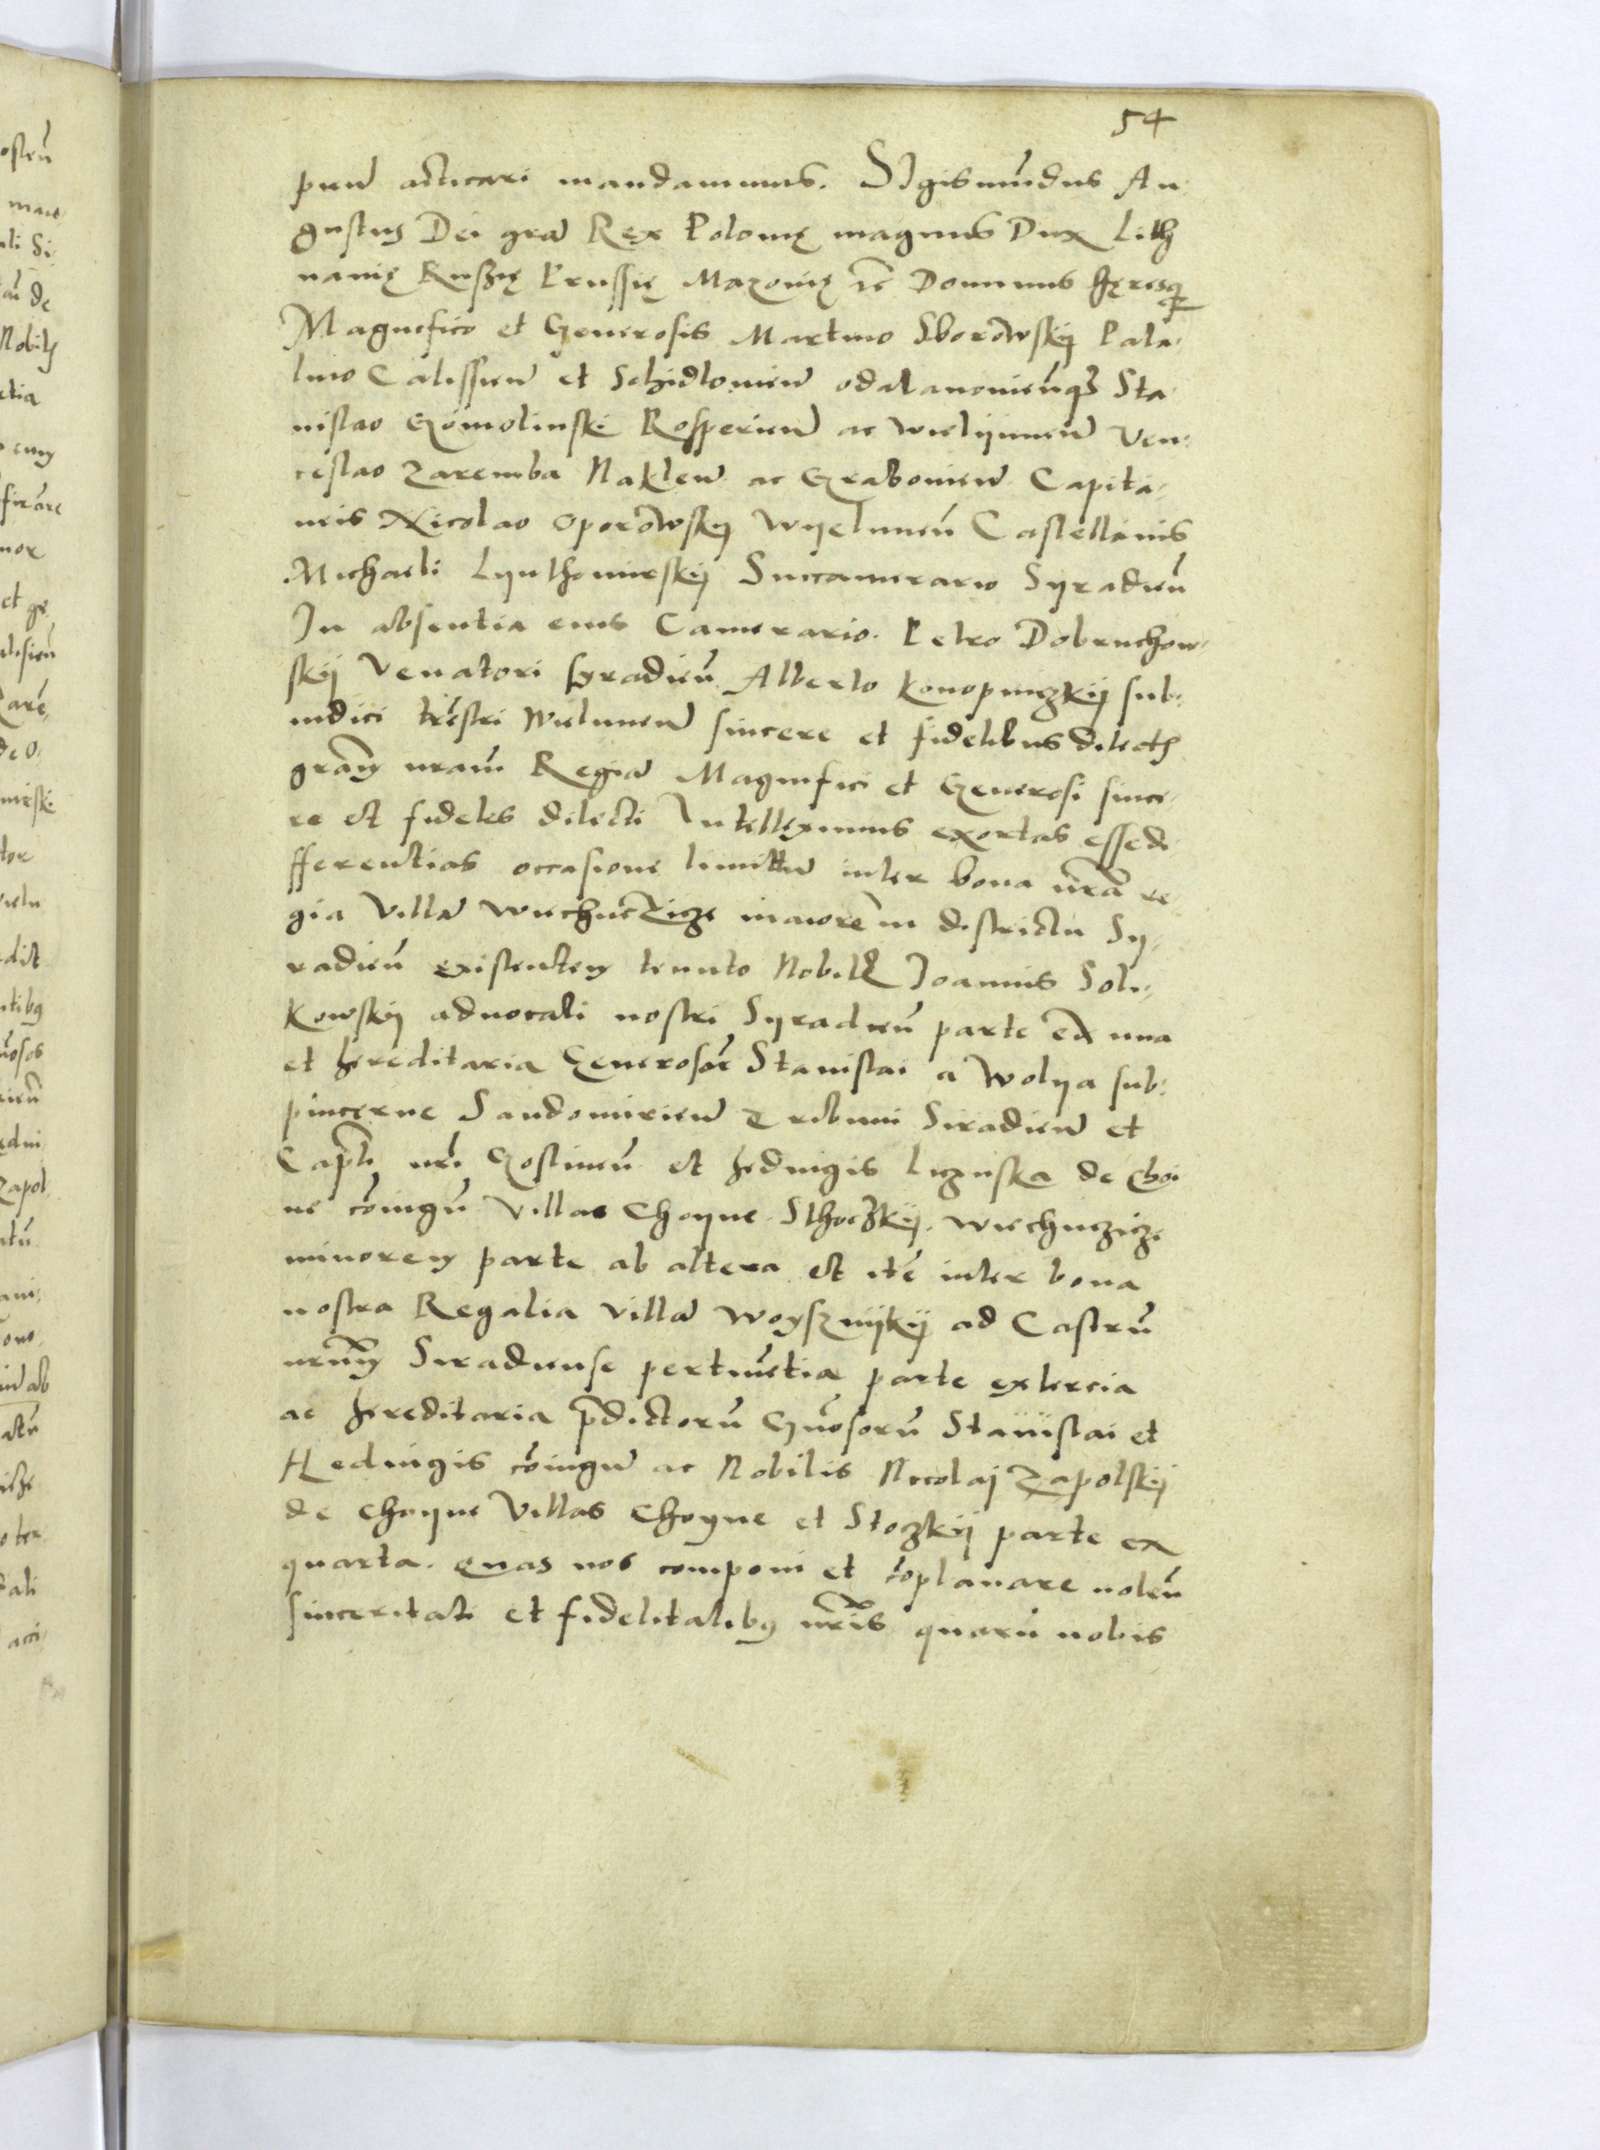 54
prūt acticari mandamus. Sigismūdus Au-
gustus Dei grā Rex Polonię magnus Dux Lith
uanię Russię Prussię Mazouię ꝛc Dominus hęresq
Magnifico et Generosis Martino Sborowskÿ Pala-
tino Calissien̄ et Schidlouien̄ odalanouien̄qȝ Sta-
nislao Gomolinski Rosperien̄ ac wielÿunien̄ Ven-
ceslao Zaremba Naklen̄ ac Grabouien̄ Capita-
neis Nicolao Oporowskÿ Wÿelunen̄ Castellanis
Michaeli Lÿuthomirskÿ Succamerario Sÿradien̄
In absentia eius Camerario. Petro Dobruchow-
skÿ Venatori sÿradien̄ Alberto Konopniczkÿ sub-
iudici trēstri Wielunien̄ sincere et fidelibus dilectȷ
grām nrām Regiā Magnifici et Generosi since-
re et fideles dilecti Intelleximus exortas esse di-
fferentias occasione limitū inter bona nrā re-
gia Villā wiechucZicze maiorē in districtu Sÿ-
radien̄ existentem tenuto Nobil Joannis Soli-
kowskÿ aduocati nostri Sÿradien̄ parte ex una
et hereditaria Generosor̄ Stanislai a Wolÿa sub-
pincerne Sandomirien̄ Tribuni Siradien̄ et
Capti nri Gostinen̄ et hedwigis liczuska de Choi
ne cōiugū Villas Choÿne Sthoczkÿ. wiechuczicze
minorem parte ab altera et itē inter bona
nostra Regalia Villā Woysznÿkÿ ad Castrū
nrūm Siradiense pertinētia parte ex tercia
ac hereditaria p̄dictorū Gn̄osorū Stanislai et
Hedwigis cōiugū ac Nobilis Nicolaj Zapolskÿ
de Choÿne Villas Choyne et Stoczkÿ parte ex
quarta. Quas nos componi et cōplanare uolen̄
sinceritati et fidelitatibȝ vr̄is quarū nobis